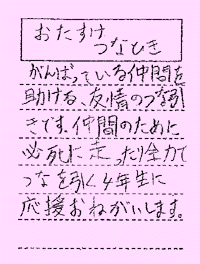 おたすけ
つなひき
がんばっている仲間を
助ける、友情のつな引
きです。仲間のために
必死に走ったり全力で
つなを引く4年生に
応援おねがいします。